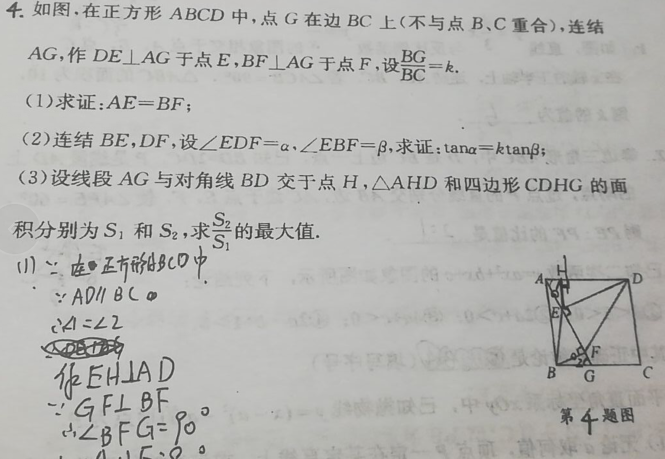 4. 如图,在正方形 ABCD 中,点 G 在边 BC 上(不与点 B、C 重合),连结
AG,作 DE⊥AG 于点 E,BF⊥AG 于点 F,设BG/BC=k.
(1)求证:AE=BF;
(2)连结 BE,DF,设∠EDF=α,∠EBF=β,求证:tanα=ktanβ;
(3)设线段 AG 与对角线 BD 交于点 H,△AHD 和四边形 CDHG 的面
积分别为 S₁ 和 S₂,求S₂/S₁的最大值.
(1) ∵ 在正方形ABCD中
∵ AD∥BC
∴∠1=∠2
作EH⊥AD
∵ GF⊥BF
∴∠BFG=90°
A H D
E
F
2
B G C
第 4 题图